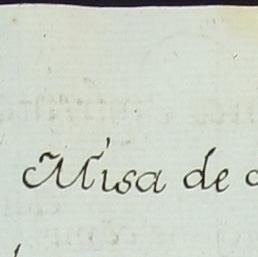 Misa de